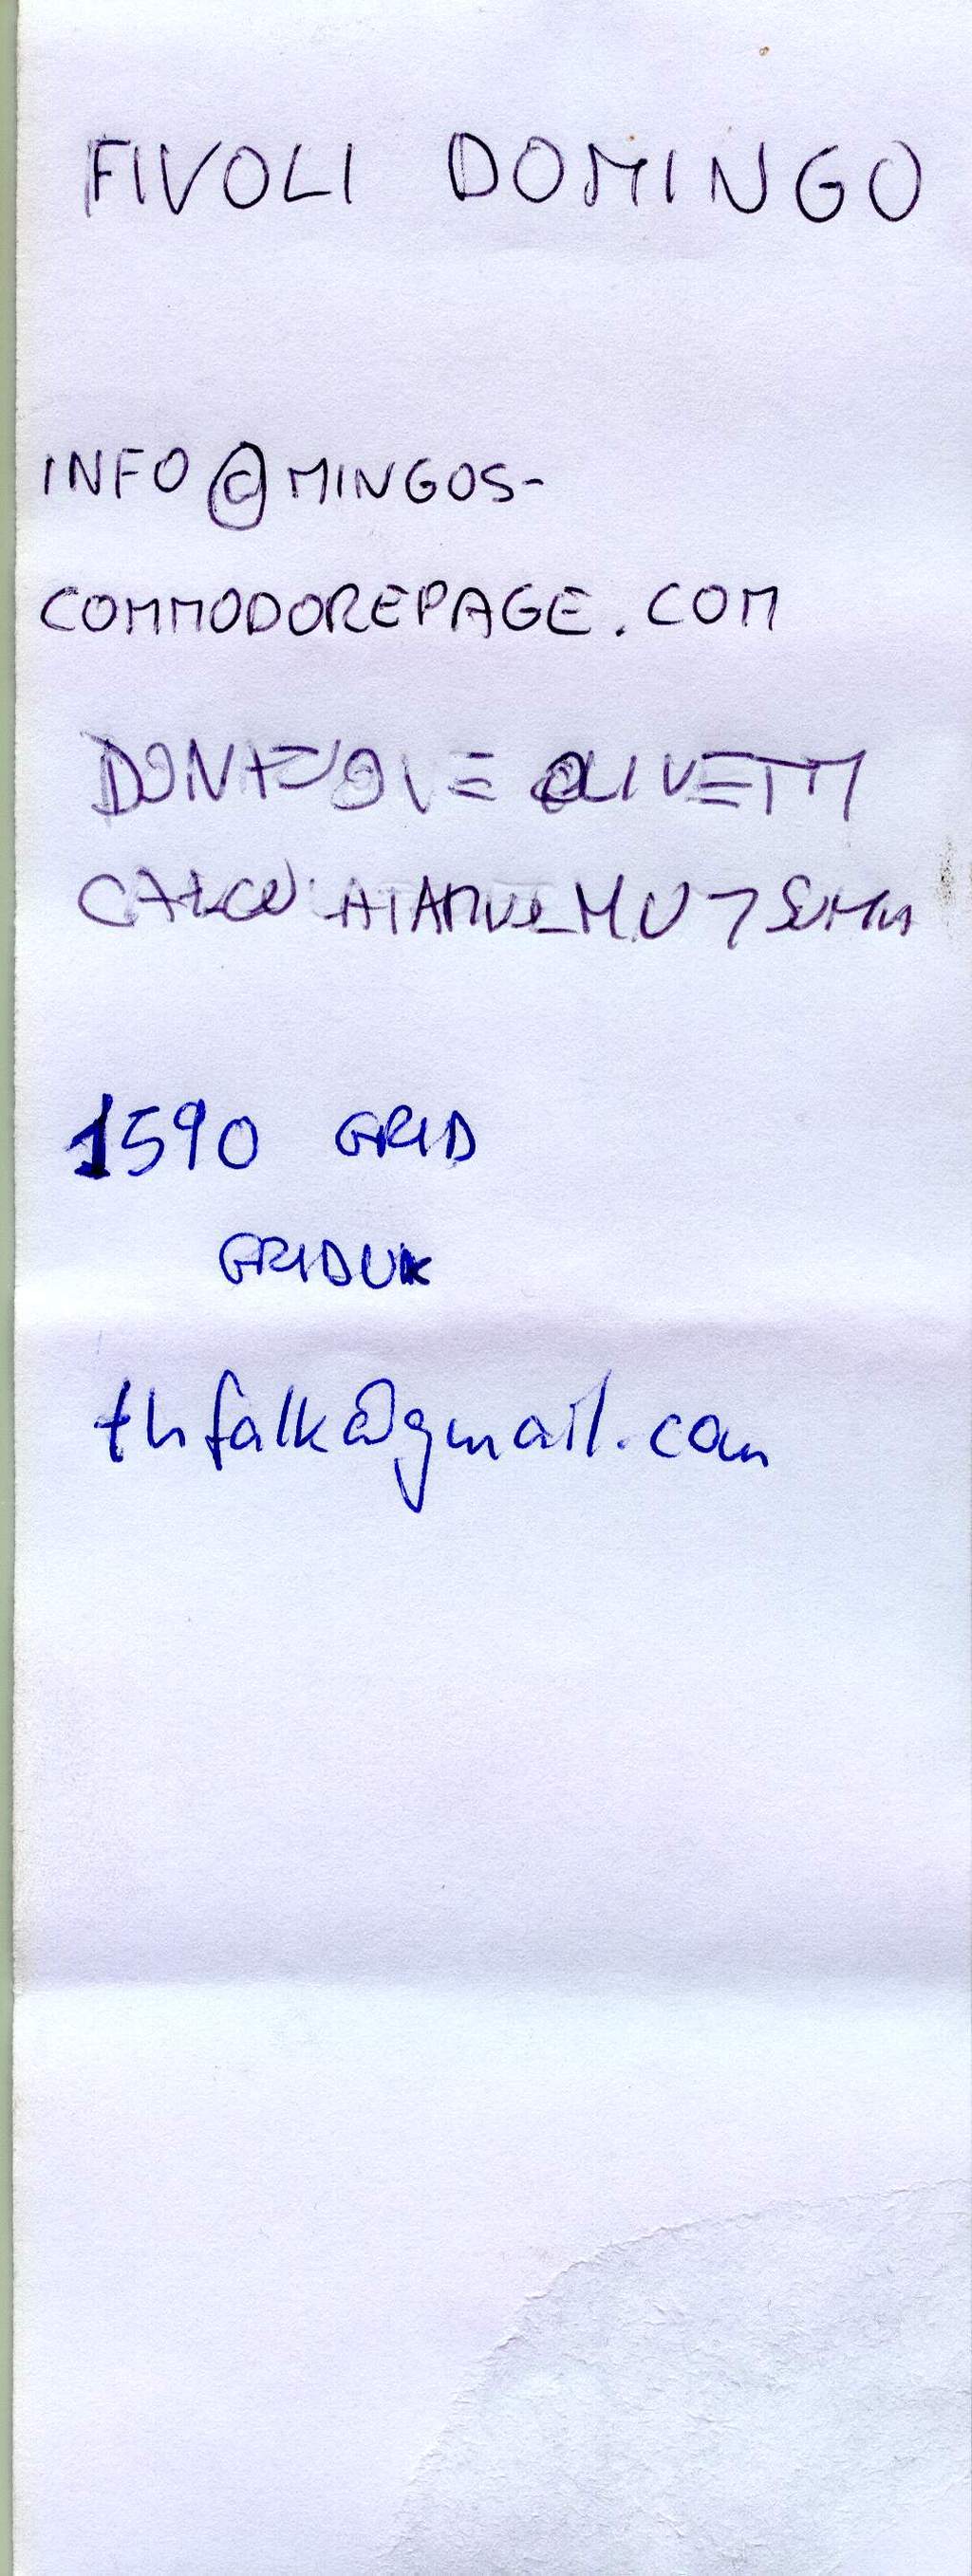 FIVOLI DOMINGO
INFO@MINGOS-
COMMODOREPAGE.COM
DONAZIONE OLIVETTI
1590 GRID
GRIDUK
thfalk@gmail.com